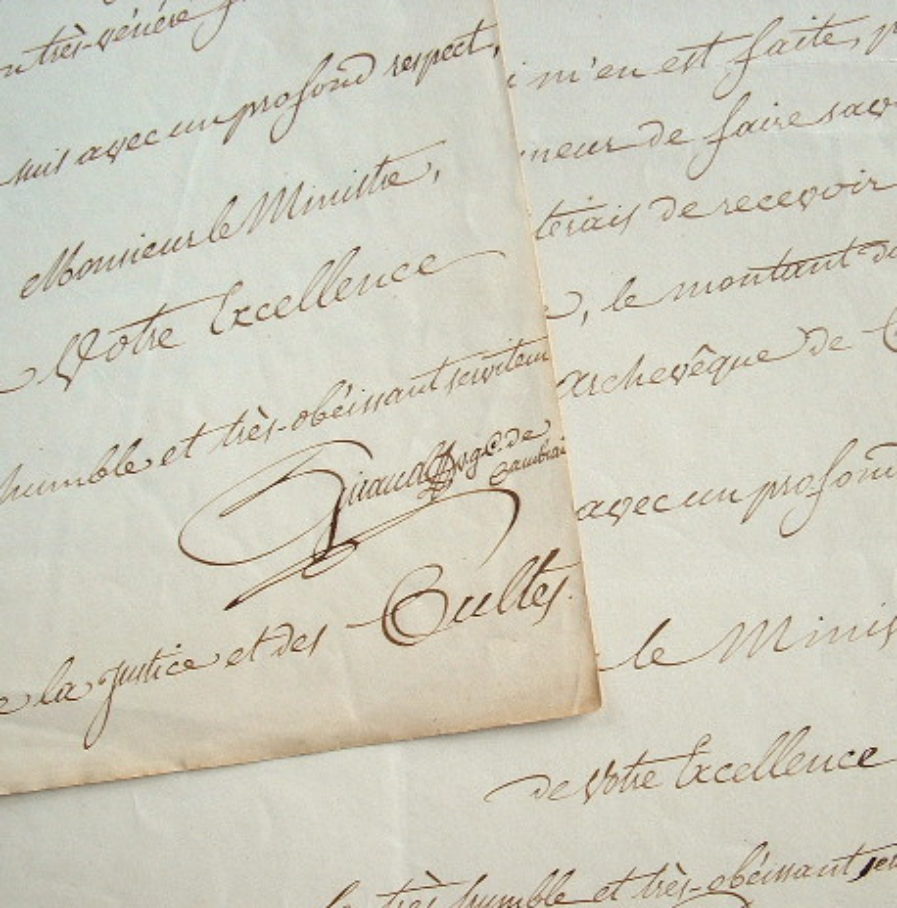 très-vénéré
suis avec un profond respect,
Monsieur le Ministre,
Votre Excellence
humble et très-obéissant serviteur
Giraud Arch. de
Cambrai
la Justice et des Cultes.
m'en est faite,
neur de faire sav
terais de recevoir
, le montant d
archevêque de C
avec un profond
le Minis
de Votre Excellence
le très humble et très-obéissant ser